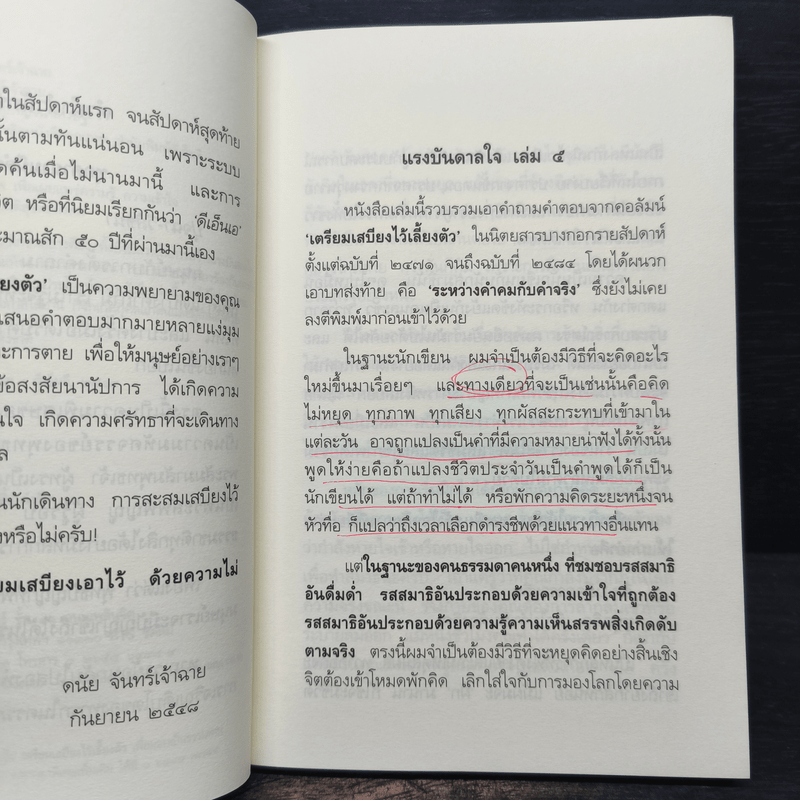 ในสัปดาห์แรก จนสัปดาห์สุดท้าย
นั้นตามทันแน่นอน เพราะระบบ
ค้นเมื่อไม่นานมานี้ และการ
หรือที่นิยมเรียกกันว่า ‘ดีเอ็นเอ’
มาณสัก ๕๐ ปีที่ผ่านมานี้เอง
ยงตัว’ เป็นความพยายามของคุณ
สนอคำตอบมากมายหลายแง่มุม
ะการตาย เพื่อให้มนุษย์อย่างเราๆ
ข้อสงสัยนานัปการ ได้เกิดความ
นใจ เกิดความศรัทธาที่จะเดินทาง
ล
นนักเดินทาง การสะสมเสบียงไว้
งหรือไม่ครับ!
ยมเสบียงเอาไว้ ด้วยความไม่
ดนัย จันทร์เจ้าฉาย
กันยายน ๒๕๔๘
แรงบันดาลใจ เล่ม ๕
หนังสือเล่มนี้รวบรวมเอาคำถามคำตอบจากคอลัมน์
‘เตรียมเสบียงไว้เลี้ยงตัว’ ในนิตยสารบางกอกรายสัปดาห์
ตั้งแต่ฉบับที่ ๒๔๗๑ จนถึงฉบับที่ ๒๔๘๔ โดยได้ผนวก
เอาบทส่งท้าย คือ ‘ระหว่างคำคมกับคำจริง’ ซึ่งยังไม่เคย
ลงตีพิมพ์มาก่อนเข้าไว้ด้วย
ในฐานะนักเขียน ผมจำเป็นต้องมีวิธีที่จะคิดอะไร
ใหม่ขึ้นมาเรื่อยๆ และทางเดียวที่จะเป็นเช่นนั้นคือคิด
ไม่หยุด ทุกภาพ ทุกเสียง ทุกผัสสะกระทบที่เข้ามาใน
แต่ละวัน อาจถูกแปลงเป็นคำที่มีความหมายน่าฟังได้ทั้งนั้น
พูดให้ง่ายคือถ้าแปลงชีวิตประจำวันเป็นคำพูดได้ก็เป็น
นักเขียนได้ แต่ถ้าทำไม่ได้ หรือพักความคิดระยะหนึ่งจน
หัวทื่อ ก็แปลว่าถึงเวลาเลือกดำรงชีพด้วยแนวทางอื่นแทน
แต่ในฐานะของคนธรรมดาคนหนึ่ง ที่ชมชอบรสสมาธิ
อันดื่มด่ำ รสสมาธิอันประกอบด้วยความเข้าใจที่ถูกต้อง
รสสมาธิอันประกอบด้วยความรู้ความเห็นสรรพสิ่งเกิดดับ
ตามจริง ตรงนี้ผมจำเป็นต้องมีวิธีที่จะหยุดคิดอย่างสิ้นเชิง
จิตต้องเข้าโหมดพักคิด เลิกใส่ใจกับการมองโลกโดยความ